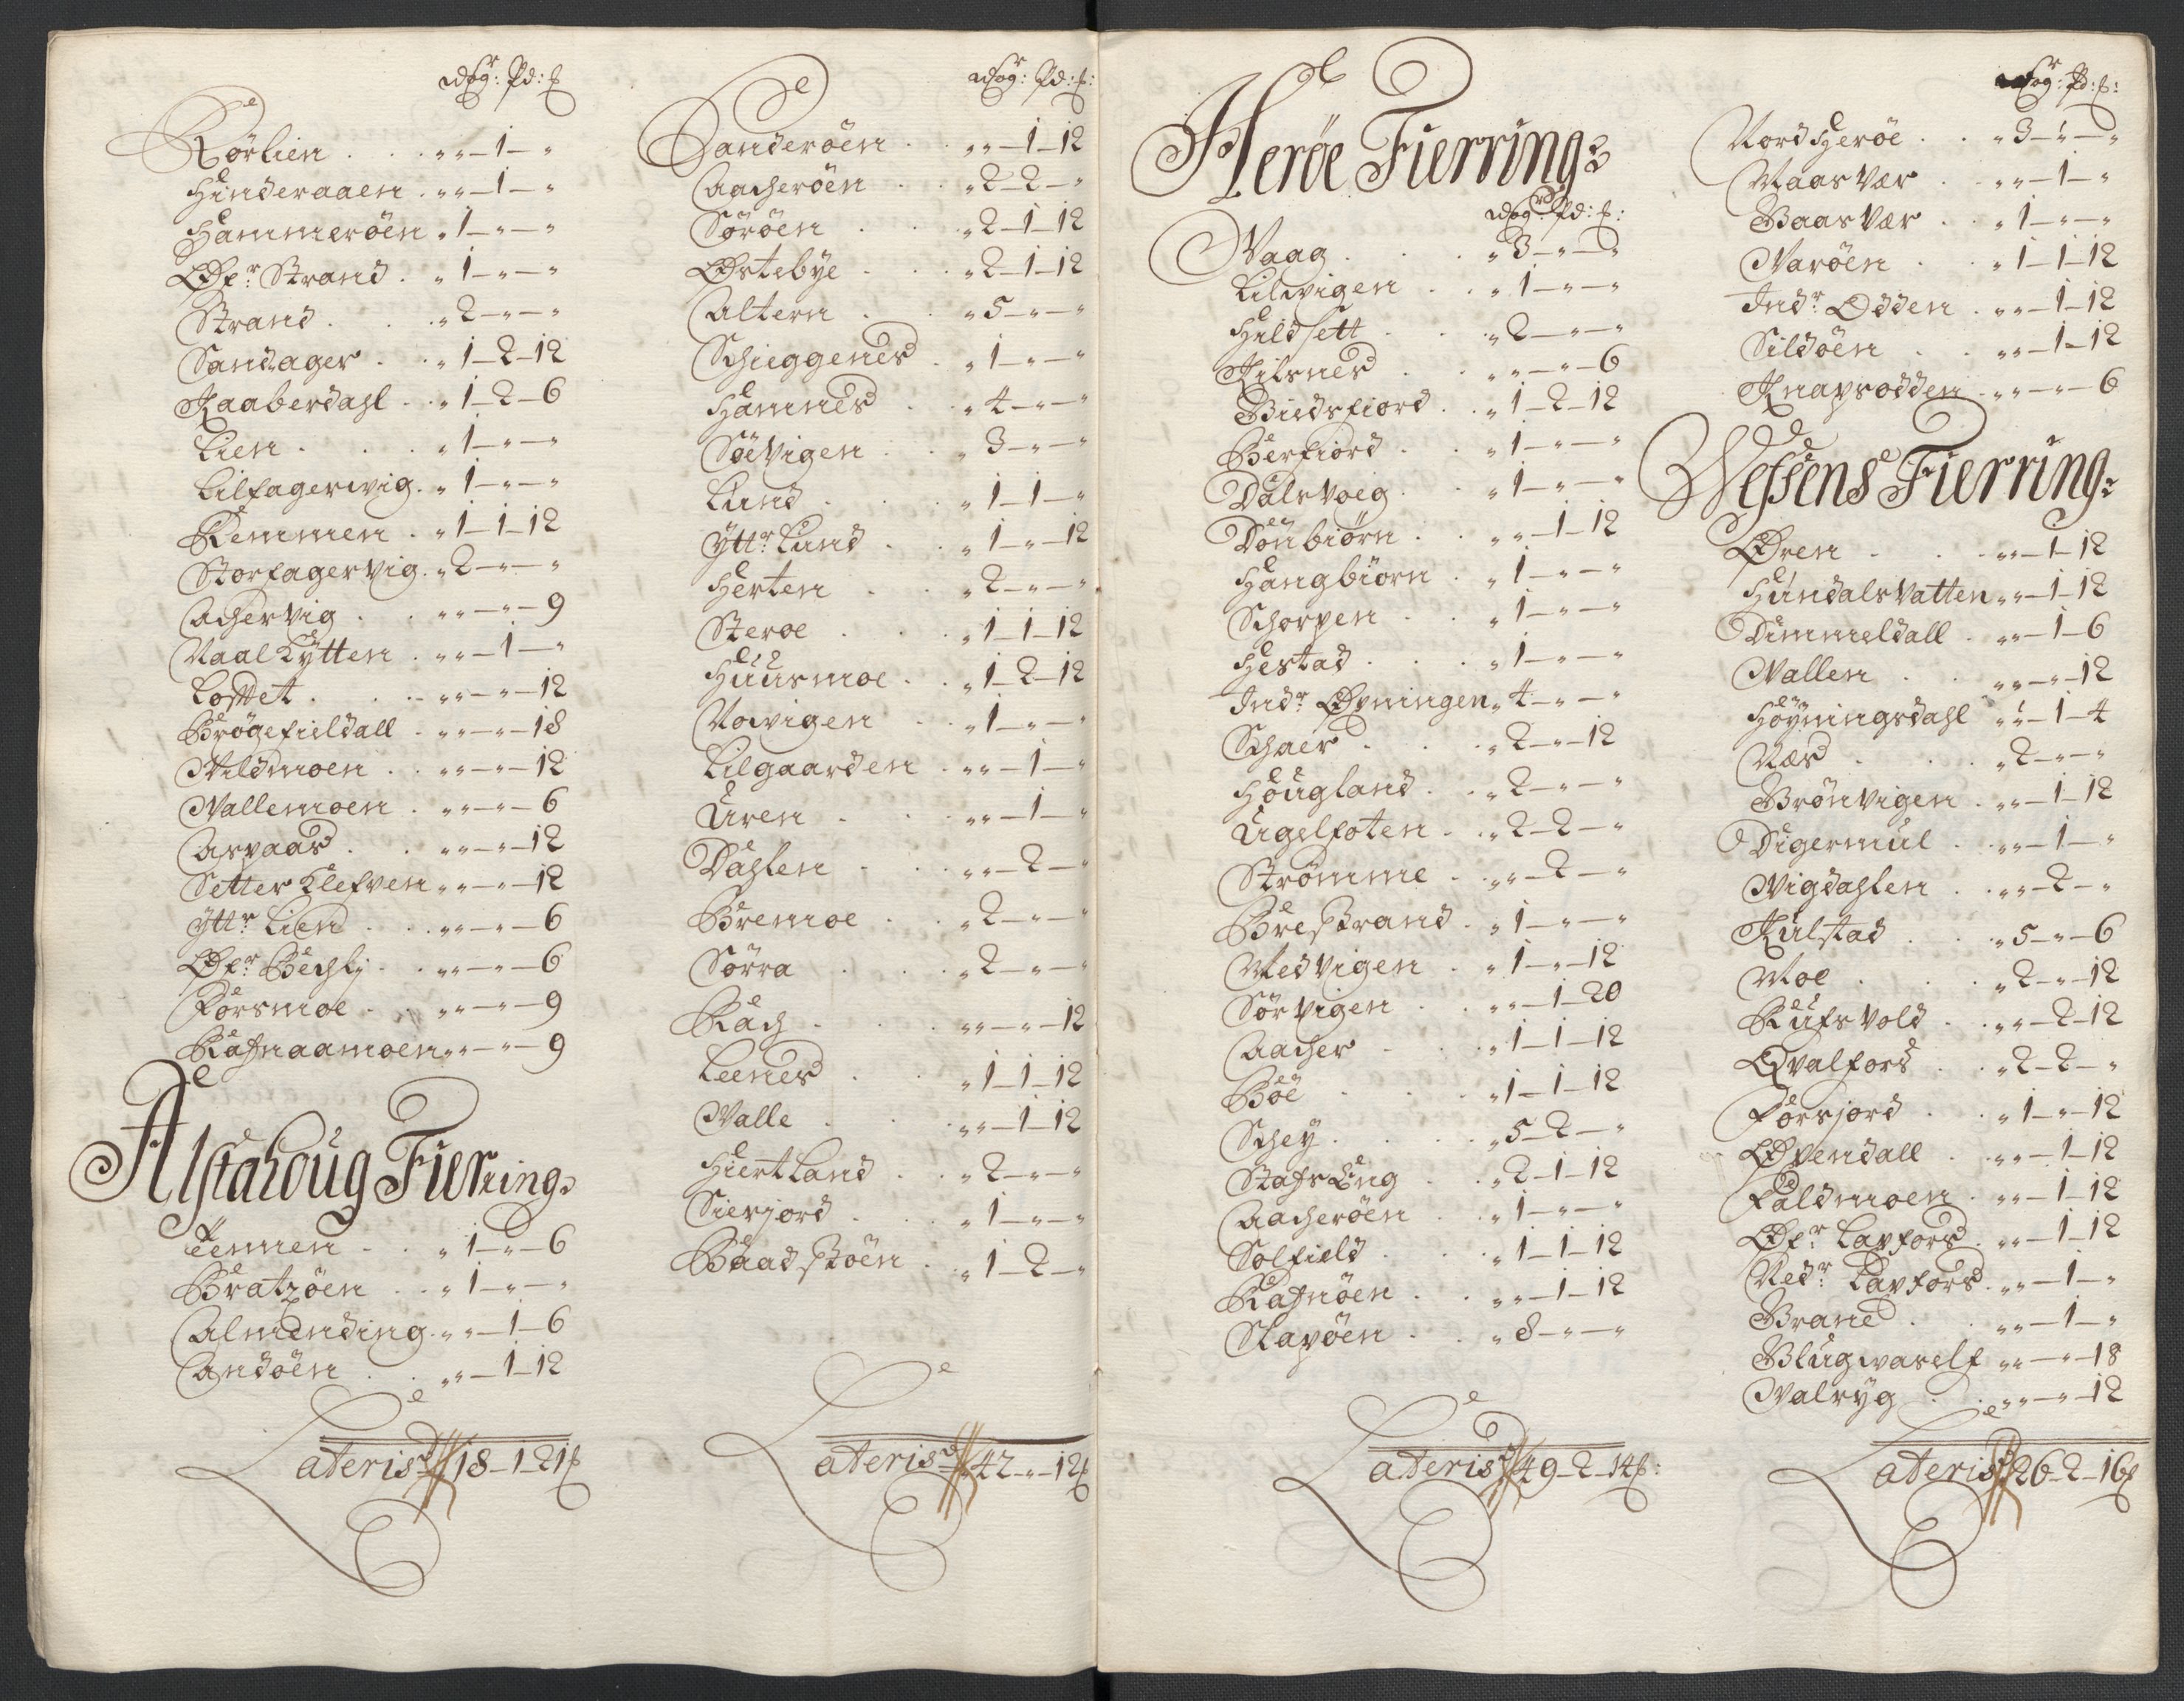 Wog: Pd: ₤
Rörlien . . . " " – 1 – "
Hinderaaen . " " – 1 – "
Hammeröen " 1 – " – "
Öfr Strand . " 1 – " – "
Strand . . . " 2 – " – "
Sandager . . " 1 – 2 – 12
Kaaberdahl . . " 1 – 2 – 6
Lien . . . " 1 – " – "
Lilfagerwig . " 1 – " – "
Remmen . . " 1 – 1 – 12
Storfagervig . " 2 – " – "
Achervig . . " " – " – 9
Naal Kÿtten . " " – 1 – "
. . . " " – " – 12
Brögefieldall . " " – " – 18
Vildmoen . . " " – " – 12
Vallemoen . " " – " – 6
Aspaas . . " " – " – 12
Setter Klefven " " – " – 12
Ÿttr Lien . . " " – " – 6
Öfr Bechlj . . " " – " – 6
Forsmoe . . " " – " – 9
Rafnaamoen " " – " – 9
Alstahoug Fierring
Temmen . . " 1 – " – 6
Bratzöen . . " 1 – " – "
Almending . " " – 1 – 6
Andöen . . " " – 1 – 12
Lateris 18 – 1 – 21 ₤
Wog: Pd: ₤:
Sanderöen . " " – 1 – 12
Aacheröen . . " 2 – 2 – "
Söröen . . " 2 – 1 – 12
Östebÿe . . " 2 – 1 – 12
Altern . . " 5 – " – "
Schieggenes . " 1 – " – "
Hamnes . . " 4 – " – "
Söevigen . . " 3 – " – "
Lund . . . " 1 – 1 – "
Ÿttr Lund . . " 1 – " – 12
Herten . . " 2 – " – "
Steroe . . " 1 – 1 – 12
Huusmoe . . " 1 – 2 – 12
Nowigen . . " 1 – " – "
Lilgaarden . " " – 1 – "
Uren . . " " – 1 – "
Dahlen . . " " – 2 – "
Bremoe . . " 2 – " – "
Sörra . . " 2 – " – "
Rach . . . " " – " – 12
Leenes . . " 1 – 1 – 12
Valle . . " " – 1 – 12
Hiertland . . " 2 – " – "
Sierjord . . " 1 – " – "
Baadstöen . " 1 – 2 – "
Lateris 42 – " – 12 ₤
Heröe Fierring
Wog: Pd: ₤:
Vaag . . . " 3 – " – "
Lilwigen . . " 1 – " – "
Hildsett . . " 2 – " – "
Kilsnes . . " " – " – 6
Biedsfiord . . " 1 – 2 – 12
Berfiord . . " 1 – " – "
Dalsvoeg . . " 1 – " – "
Dönbiörn . . " " – 1 – 12
Hangbiörn . " 1 – " – "
Schorpen . . " 1 – " – "
Hestad . . . " 1 – " – "
Indr Öfningen " 4 – " – "
Schaer . . . " 2 – " – 12
Hougland . . " 2 – " – "
Ugelfoten . . " 2 – 2 – "
Strömme . . " " – 2 – "
Brestrand . " 1 – " – "
Medvigen . " 1 – " – 12
Sörvigen . . " " – 1 – 20
Aacher . . " 1 – 1 – 12
Böe . . . " 1 – 1 – 12
Scheÿ . . . " 5 – 2 – "
Stafseng . . " 2 – 1 – 12
Aacheröen . " 1 – " – "
Solfield . . " 1 – 1 – 12
Rafnöen . . " " – 1 – 12
Slapöen . . " 8 – " – "
Lateris 49 – 2 – 14 ₤:
Wog: Pd: ₤:
Nord Heröe . . " 3 – " – "
Maasvær . . " " – 1 – "
Baasvær . . " 1 – " – "
Varöen . . " 1 – 1 – 12
Indr Odden . " " – 1 – 12
Sildöen . . " " – 1 – 12
Knapsodden . " " – " – 6
Vefsens Fierring
Ören . . . " " – 1 – 12
Hundalsvatten " " – 1 – 12
Dimmeldall . " " – 1 – 6
Vallen . . " " – " – 12
Höÿningsdahl " " – 1 – 4
Næs . . . " 2 – " – "
Brönvigen . " " – 1 – 12
Digermul . . " " – 1 – "
Vigdahlen . " " – 2 – "
Kulstad . . " 5 – " – 6
Moe . . . " 2 – " – 12
Rufsvold . . " " – 2 – 12
Qvalfors . . " 2 – 2 – "
Forsjord . . " 1 – " – 12
Öfendall . . " " – 1 – 12
Faldmoen . " " – 1 – 12
Öfr Laxfors . " " – 1 – 12
Nedr Laxfors . " " – 1 – "
Brane . . " " – 1 – "
Blugwaself " " – " – 18
Valrÿg . . " " – " – 12
Lateris 26 – 2 – 16 ₤